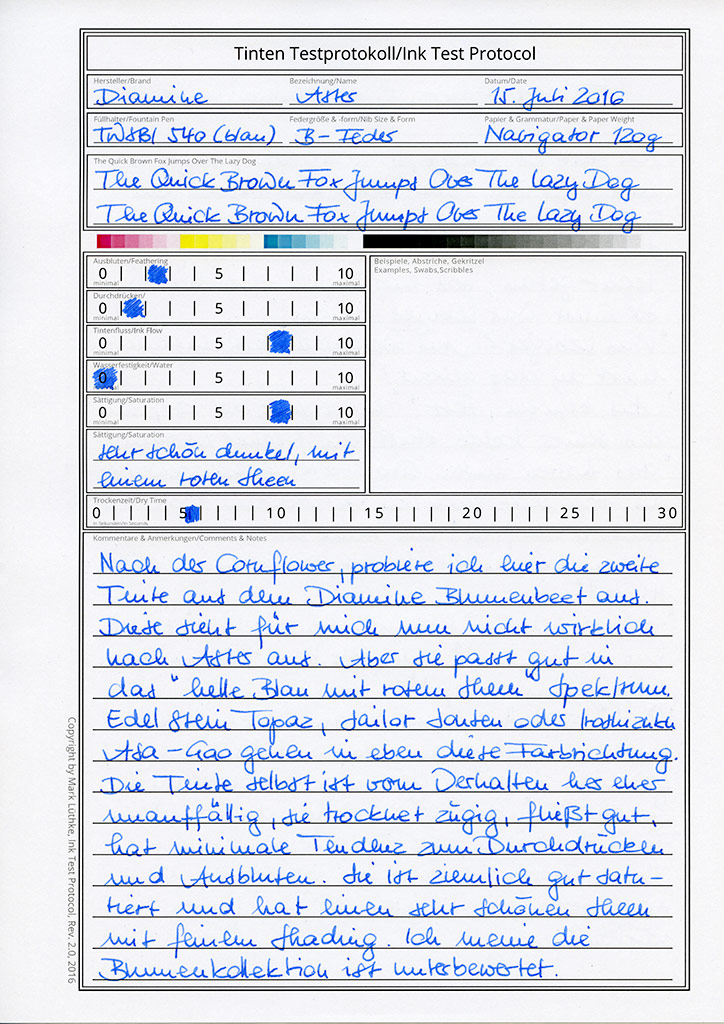 Tinten Testprotokoll/Ink Test Protocol
Hersteller/Brand Bezeichnung/Name Datum/Date
Diamine Aster 15. Juli 2016
Füllhalter/Fountain Pen Federgröße & -form/Nib Size & Form Papier & Grammatur/Paper & Paper Weight
TWSBI 540 (blau) B-Feder Navigator 120g
The Quick Brown Fox Jumps Over The Lazy Dog
The Quick Brown Fox Jumps Over The Lazy Dog
The Quick Brown Fox Jumps Over The Lazy Dog
Ausbluten/Feathering
0 5 10
minimal maximal
Durchdrücken/
0 5 10
minimal maximal
Tintenfluss/Ink Flow
0 5 10
minimal maximal
Wasserfestigkeit/Water
0 5 10
minimal maximal
Sättigung/Saturation
0 5 10
minimal maximal
Sättigung/Saturation
sehr schön dunkel, mit
einem roten Sheen
Beispiele, Abstriche, Gekritzel
Examples, Swabs,Scribbles
Trockenzeit/Dry Time
0 5 10 15 20 25 30
in Sekunden/in Seconds
Kommentare & Anmerkungen/Comments & Notes
Nach der Cornflower, probiere ich hier die zweite
Tinte aus dem Diamine Blumenbeet aus.
Diese sieht für mich nun nicht wirklich
nach Aster aus. Aber sie passt gut in
das "helle Blau mit rotem Sheen" Spektrum.
Edelstein Topaz, Sailor Souten oder Iroshizuku
Asa-Gao gehen in eben diese Farbrichtung.
Die Tinte selbst ist vom Verhalten her eher
unauffällig, sie trocknet zügig, fließt gut,
hat minimale Tendenz zum Durchdrücken
und Ausbluten. Sie ist ziemlich gut satu-
riert und hat einen sehr schönen Sheen
mit feinem Shading. Ich meine die
Blumenkollektion ist unterbewertet.
Copyright by Mark Lüthke, Ink Test Protocol, Rev. 2.0, 2016